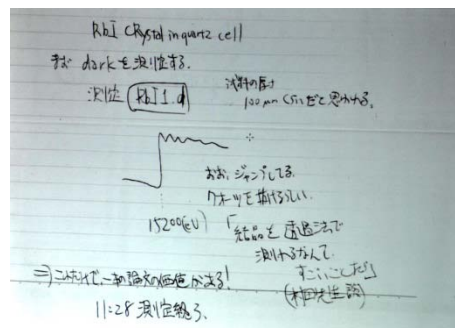 RbI CRystal in quartz cell
まず darkを測定する.
測定 RbI1.d
試料の厚さ
100μm くらいだと思われる.
おお, ジャンプしてる.
クオーツを抜けるらしい.
15200(eV)
「結晶を透過法で
測れるなんて.
すごいことだ」
(村田先生談)
⇒これだけで一報論文の価値がある!
11:28 測定終了.